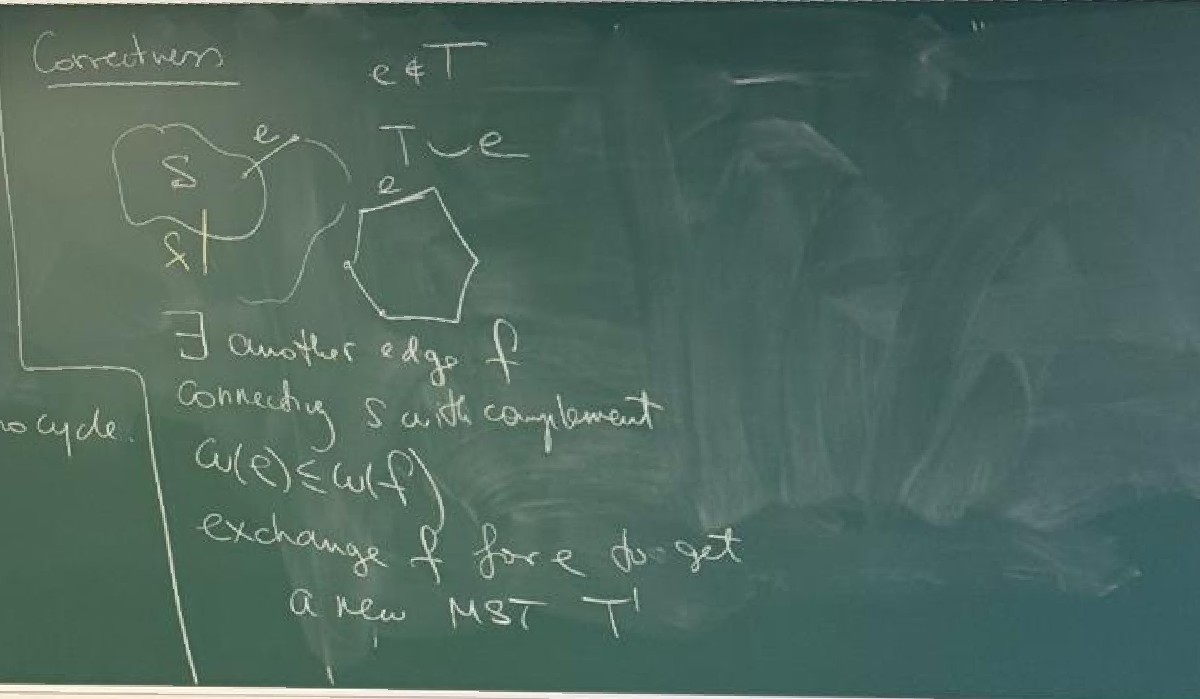 Correctness
e ∉ T
T ∪ e
e
S
e
f
∃ another edge f
connecting S with complement
w(e) ≤ w(f)
exchange f for e to get
a new MST T'
no cycle.